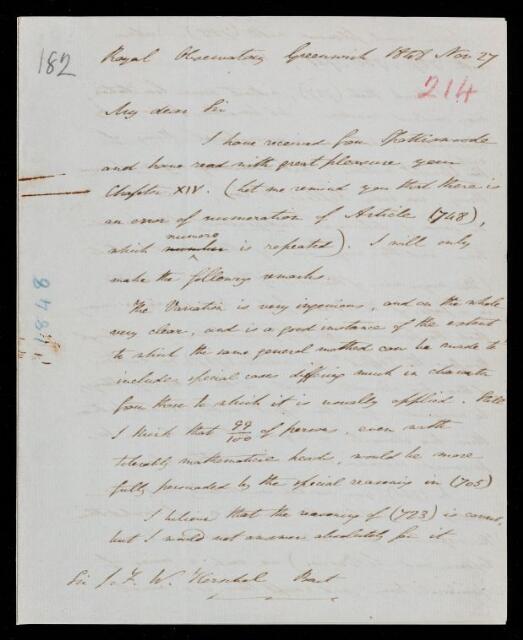 182
Royal Observatory Greenwich 1848 Nov 27
214
My dear Sir
I have received from Spottiswoode
and have read with great pleasure your
Chapter XIV. (Let me remind you that there is
an error of numeration of Article 748),
numero
which number is repeated). I will only
make the following remarks.
The Variation is very ingenious, and on the whole
very clear, and is a good instance of the extent
to which the same general method can be made to
include special cases differing much in character
from those to which it is usually applied. Still
I think that 99/100 of persons, even with
tolerably mathematical heads, would be more
fully persuaded by the special reasoning in (705)
I believe that the reasoning of (723) is correct,
but I would not answer absolutely for it
Sir J. F. W. Herschel Bart
1848